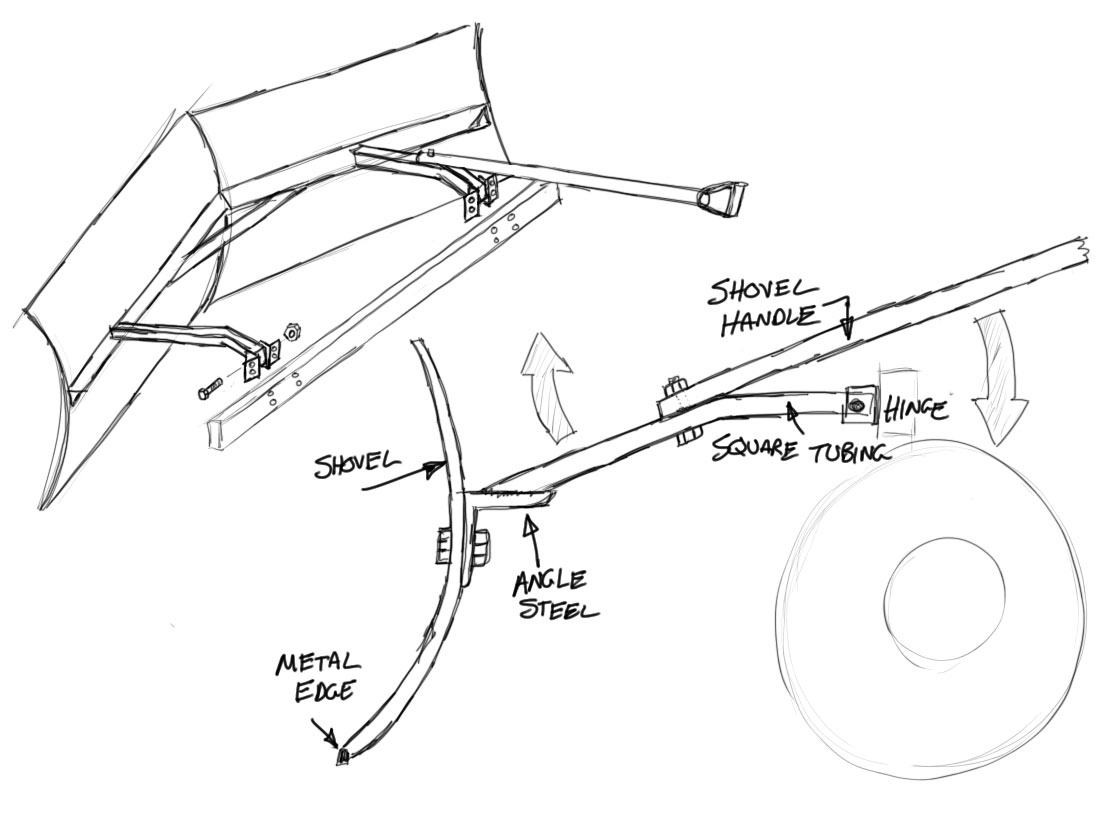 SHOVEL
HANDLE
HINGE
SQUARE TUBING
SHOVEL
ANGLE
STEEL
METAL
EDGE